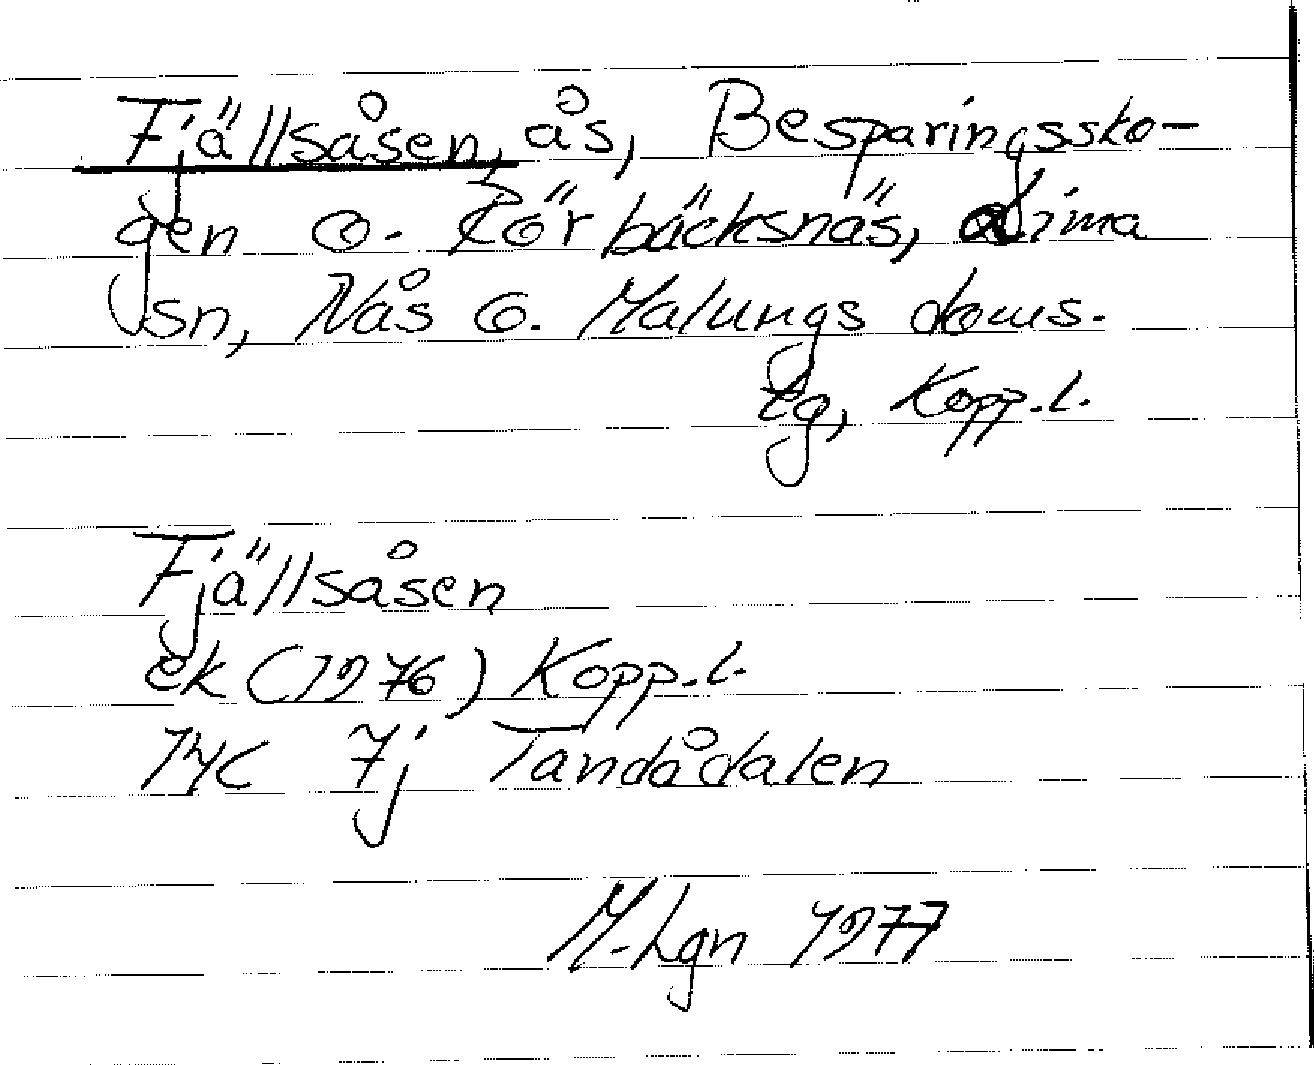 Fjällsåsen, ås, Besparingssko-
gen o. Rörbäcksnäs, Lima
sn, Nås o. Malungs doms.
tg, Kopp.l.
Fjällsåsen
ek (1976) Kopp.l.
14C 7j Tandådalen
M.Lgn 1977